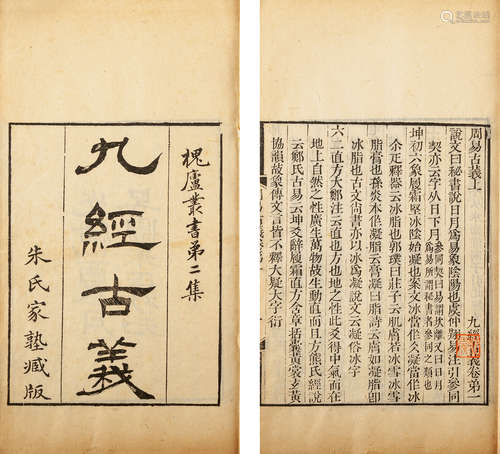 槐廬叢書第二集
九經古義
朱氏家塾臧版
周易古義上
九經古義卷第一
說文曰祕書說日月爲易象陰陽也虞仲翔易注引參同
契亦云字从日下月
參同契曰易謂坎離又曰日月
爲易所謂祕書者參同之類也
坤初六象履霜堅冰陰始凝也案文冰當作仌凝當作冰
余疋釋器云冰脂也郭璞曰莊子云肌膚若冰雪冰雪
脂膏也孫炎本作凝脂云膏凝曰脂詩云膚如凝脂當作
冰脂也古文尚書亦以冰爲凝說文云凝俗冰字
六二直方大鄭注云直也方也地之性此爻得中气而在
地上自然之性廣生萬物故生動直而且方熊氏經說
云鄭氏古易云坤爻辭履霜直方含章括囊黃裳玄黃
協韻故象傳文言皆不釋大疑大字衍